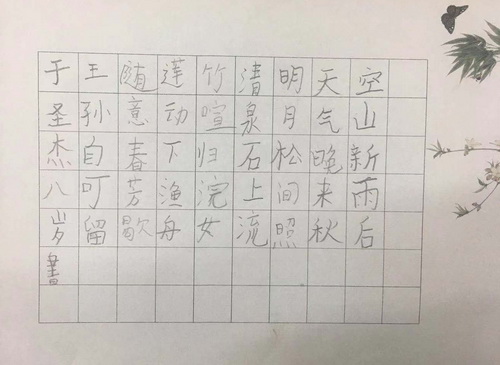 空山新雨后
天气晚来秋
明月松间照
清泉石上流
竹喧归浣女
莲动下渔舟
随意春芳歇
王孙自叮留
于圣杰八岁書